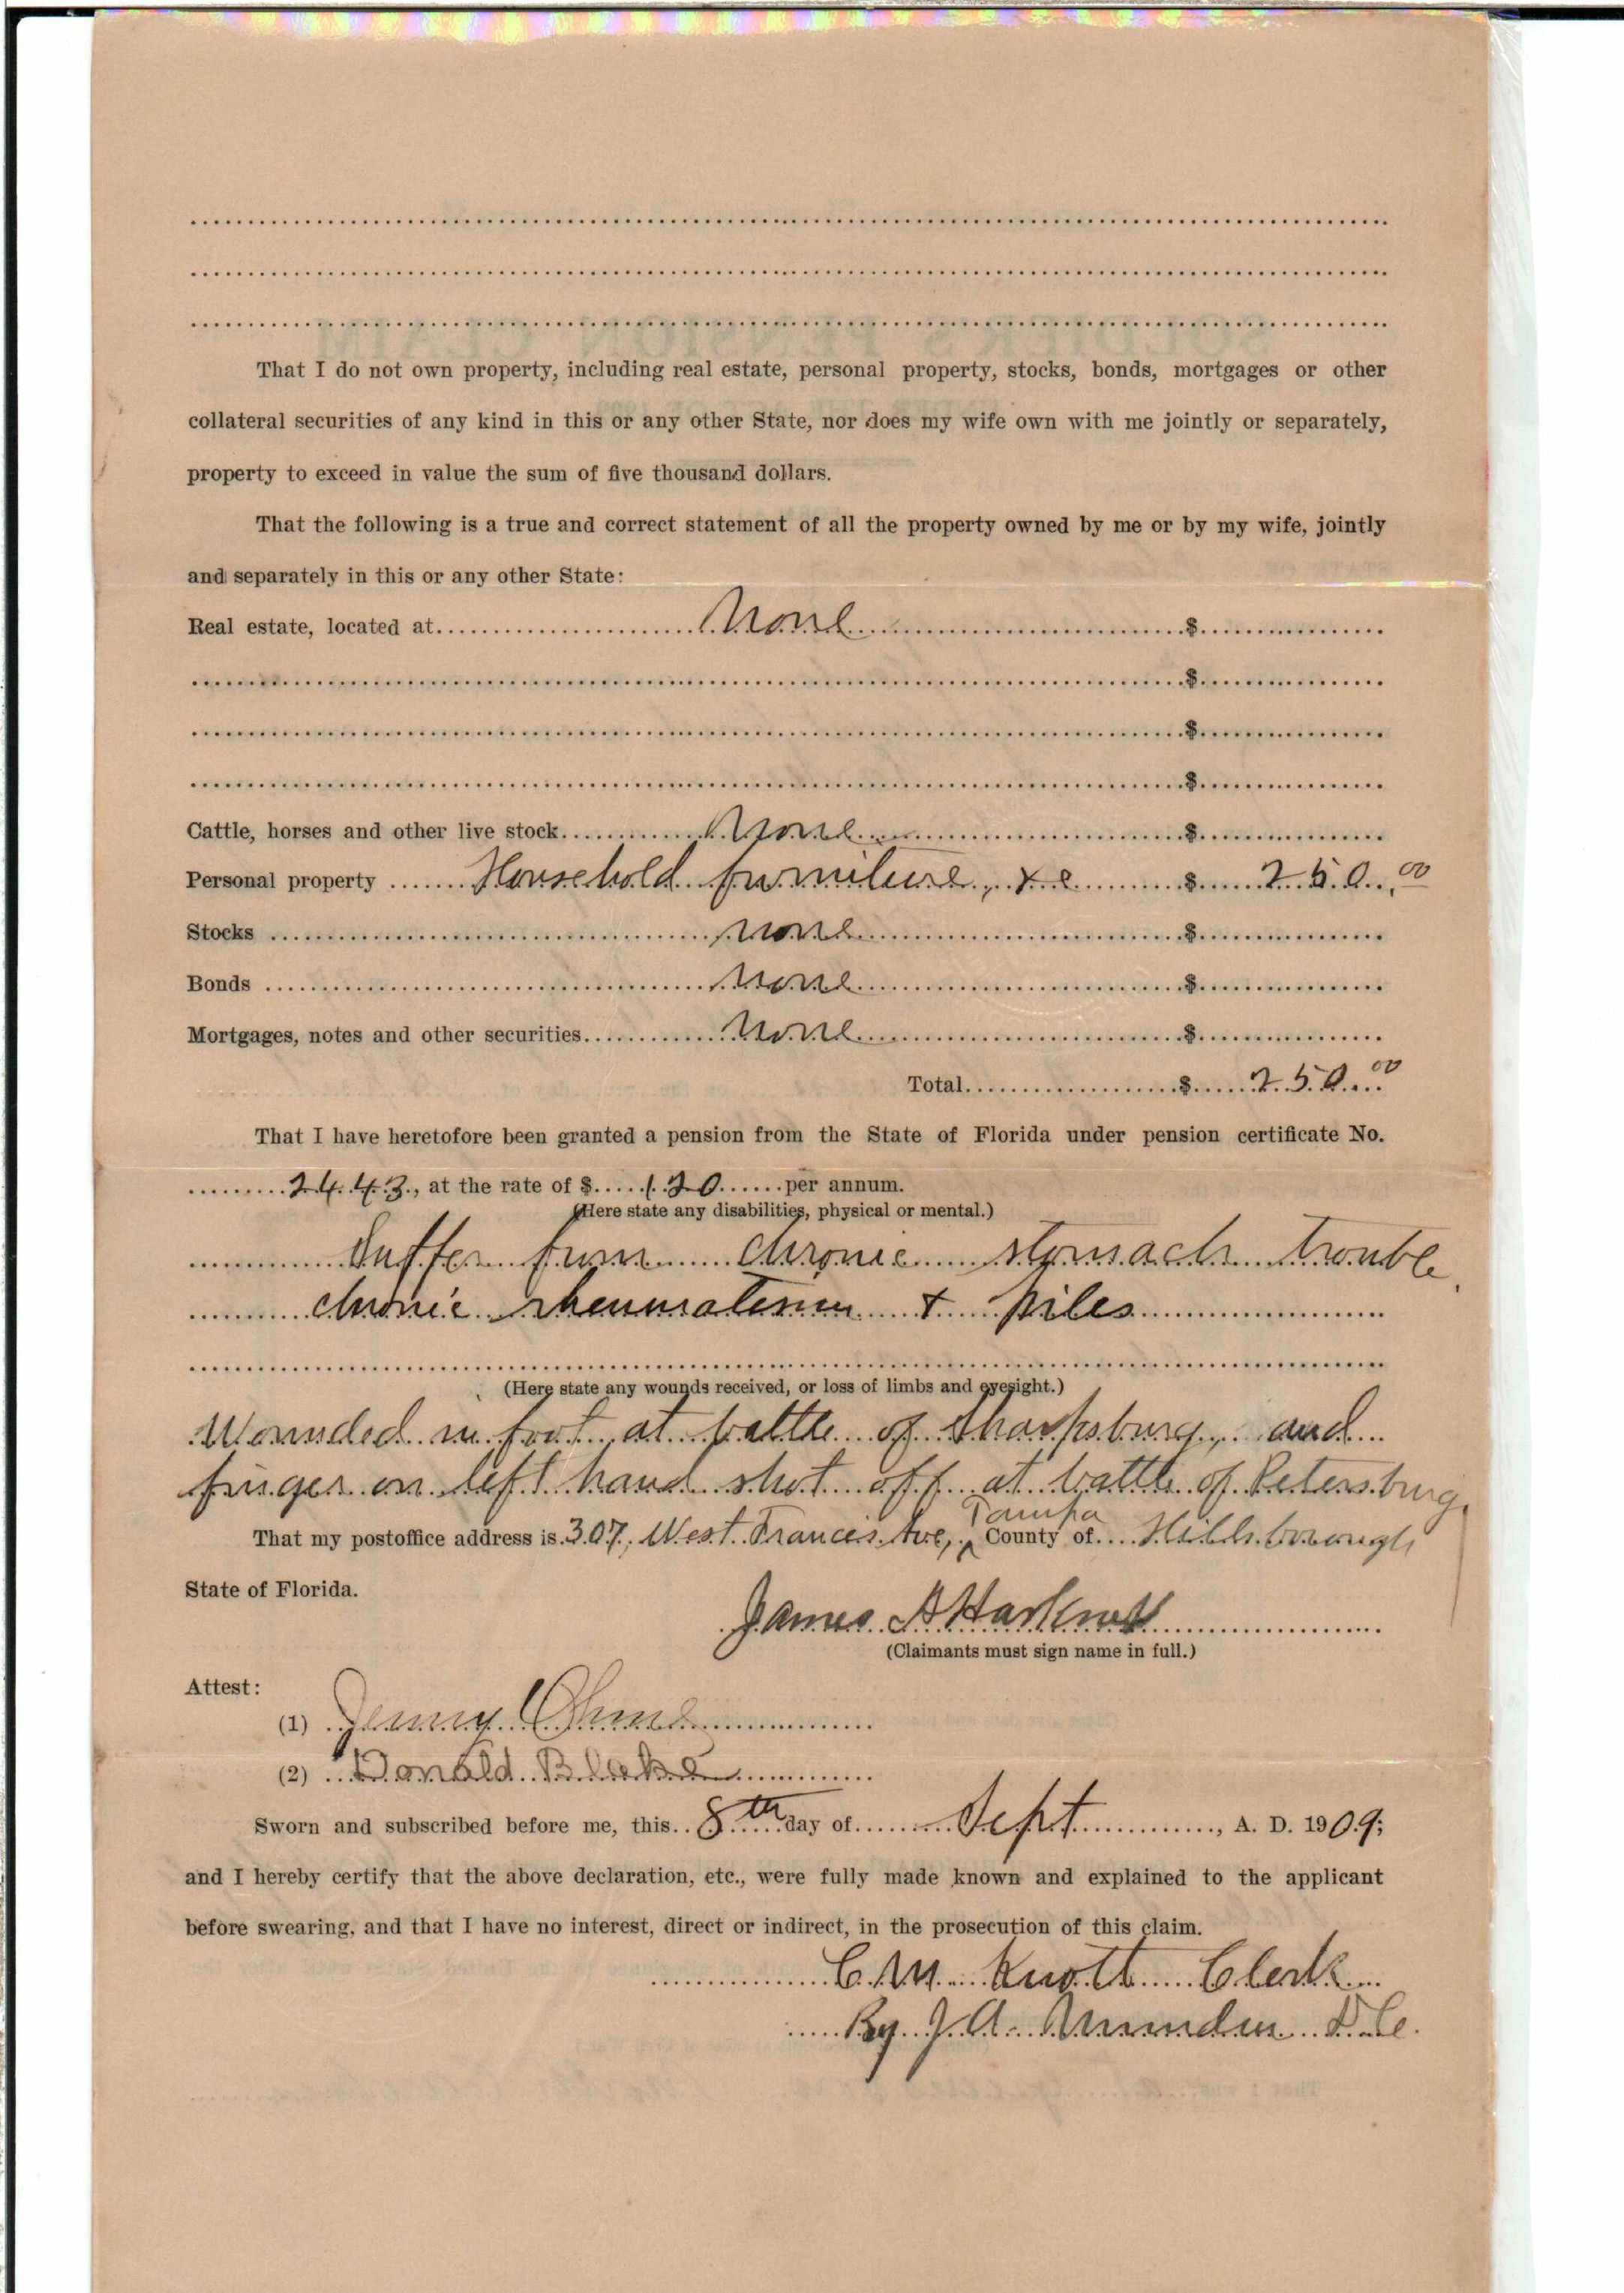 That I do not own property, including real estate, personal property, stocks, bonds, mortgages or other
collateral securities of any kind in this or any other State, nor does my wife own with me jointly or separately,
property to exceed in value the sum of five thousand dollars.
That the following is a true and correct statement of all the property owned by me or by my wife, jointly
and separately in this or any other State:
Real estate, located at None $
$
$
$
Cattle, horses and other live stock None $
Personal property Household furniture, &c $ 250.00
Stocks None $
Bonds None $
Mortgages, notes and other securities None $
Total $ 250.00
That I have heretofore been granted a pension from the State of Florida under pension certificate No.
2443, at the rate of $ 120 per annum.
(Here state any disabilities, physical or mental.)
Suffer from chronic stomach trouble,
chronic rheumatism & piles
(Here state any wounds received, or loss of limbs and eyesight.)
Wounded in foot at battle of Sharpsburg, and
finger on left hand shot off at battle of Petersburg.
That my postoffice address is 307, West Frances Ave, Tampa County of Hillsborough
State of Florida.
James A Harkness
(Claimants must sign name in full.)
Attest:
(1) Jenny
(2) Donald Blake
Sworn and subscribed before me, this 8th day of Sept, A. D. 1909;
and I hereby certify that the above declaration, etc., were fully made known and explained to the applicant
before swearing, and that I have no interest, direct or indirect, in the prosecution of this claim.
C. M. Knott Clerk
By J. A. D.C.